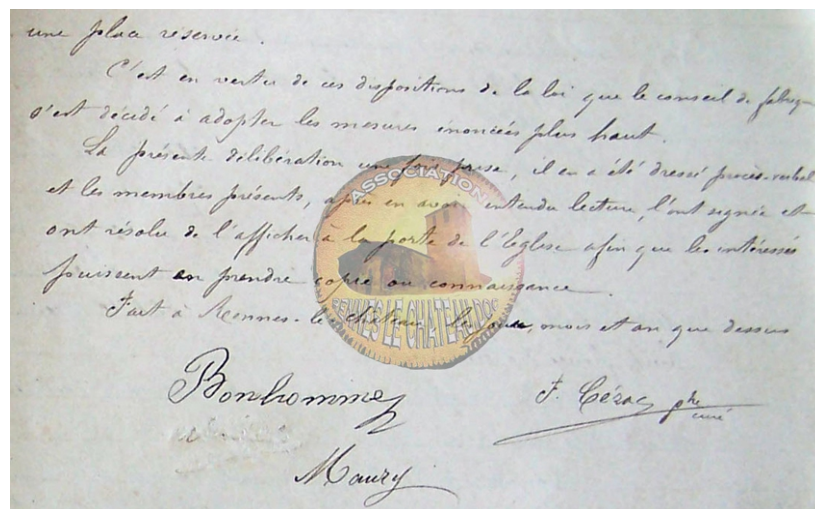 une place réservée.
C'est en vertu de ces dispositions de la loi que le conseil de fabrique
s'est décidé à adopter les mesures énoncées plus haut.
La présente délibération une fois prise, il en a été dressé procès-verbal
et les membres présents, après en avoir entendu lecture, l'ont signée et
ont résolu de l'afficher à la porte de l'église afin que les intéressés
puissent en prendre copie ou connaissance.
Fait à Rennes-le-Château, les jour, mois et an que dessus
Bonhomme
F. Cézac ptre
curé
Maury
ASSOCIATION
RENNES LE CHATEAU DOC